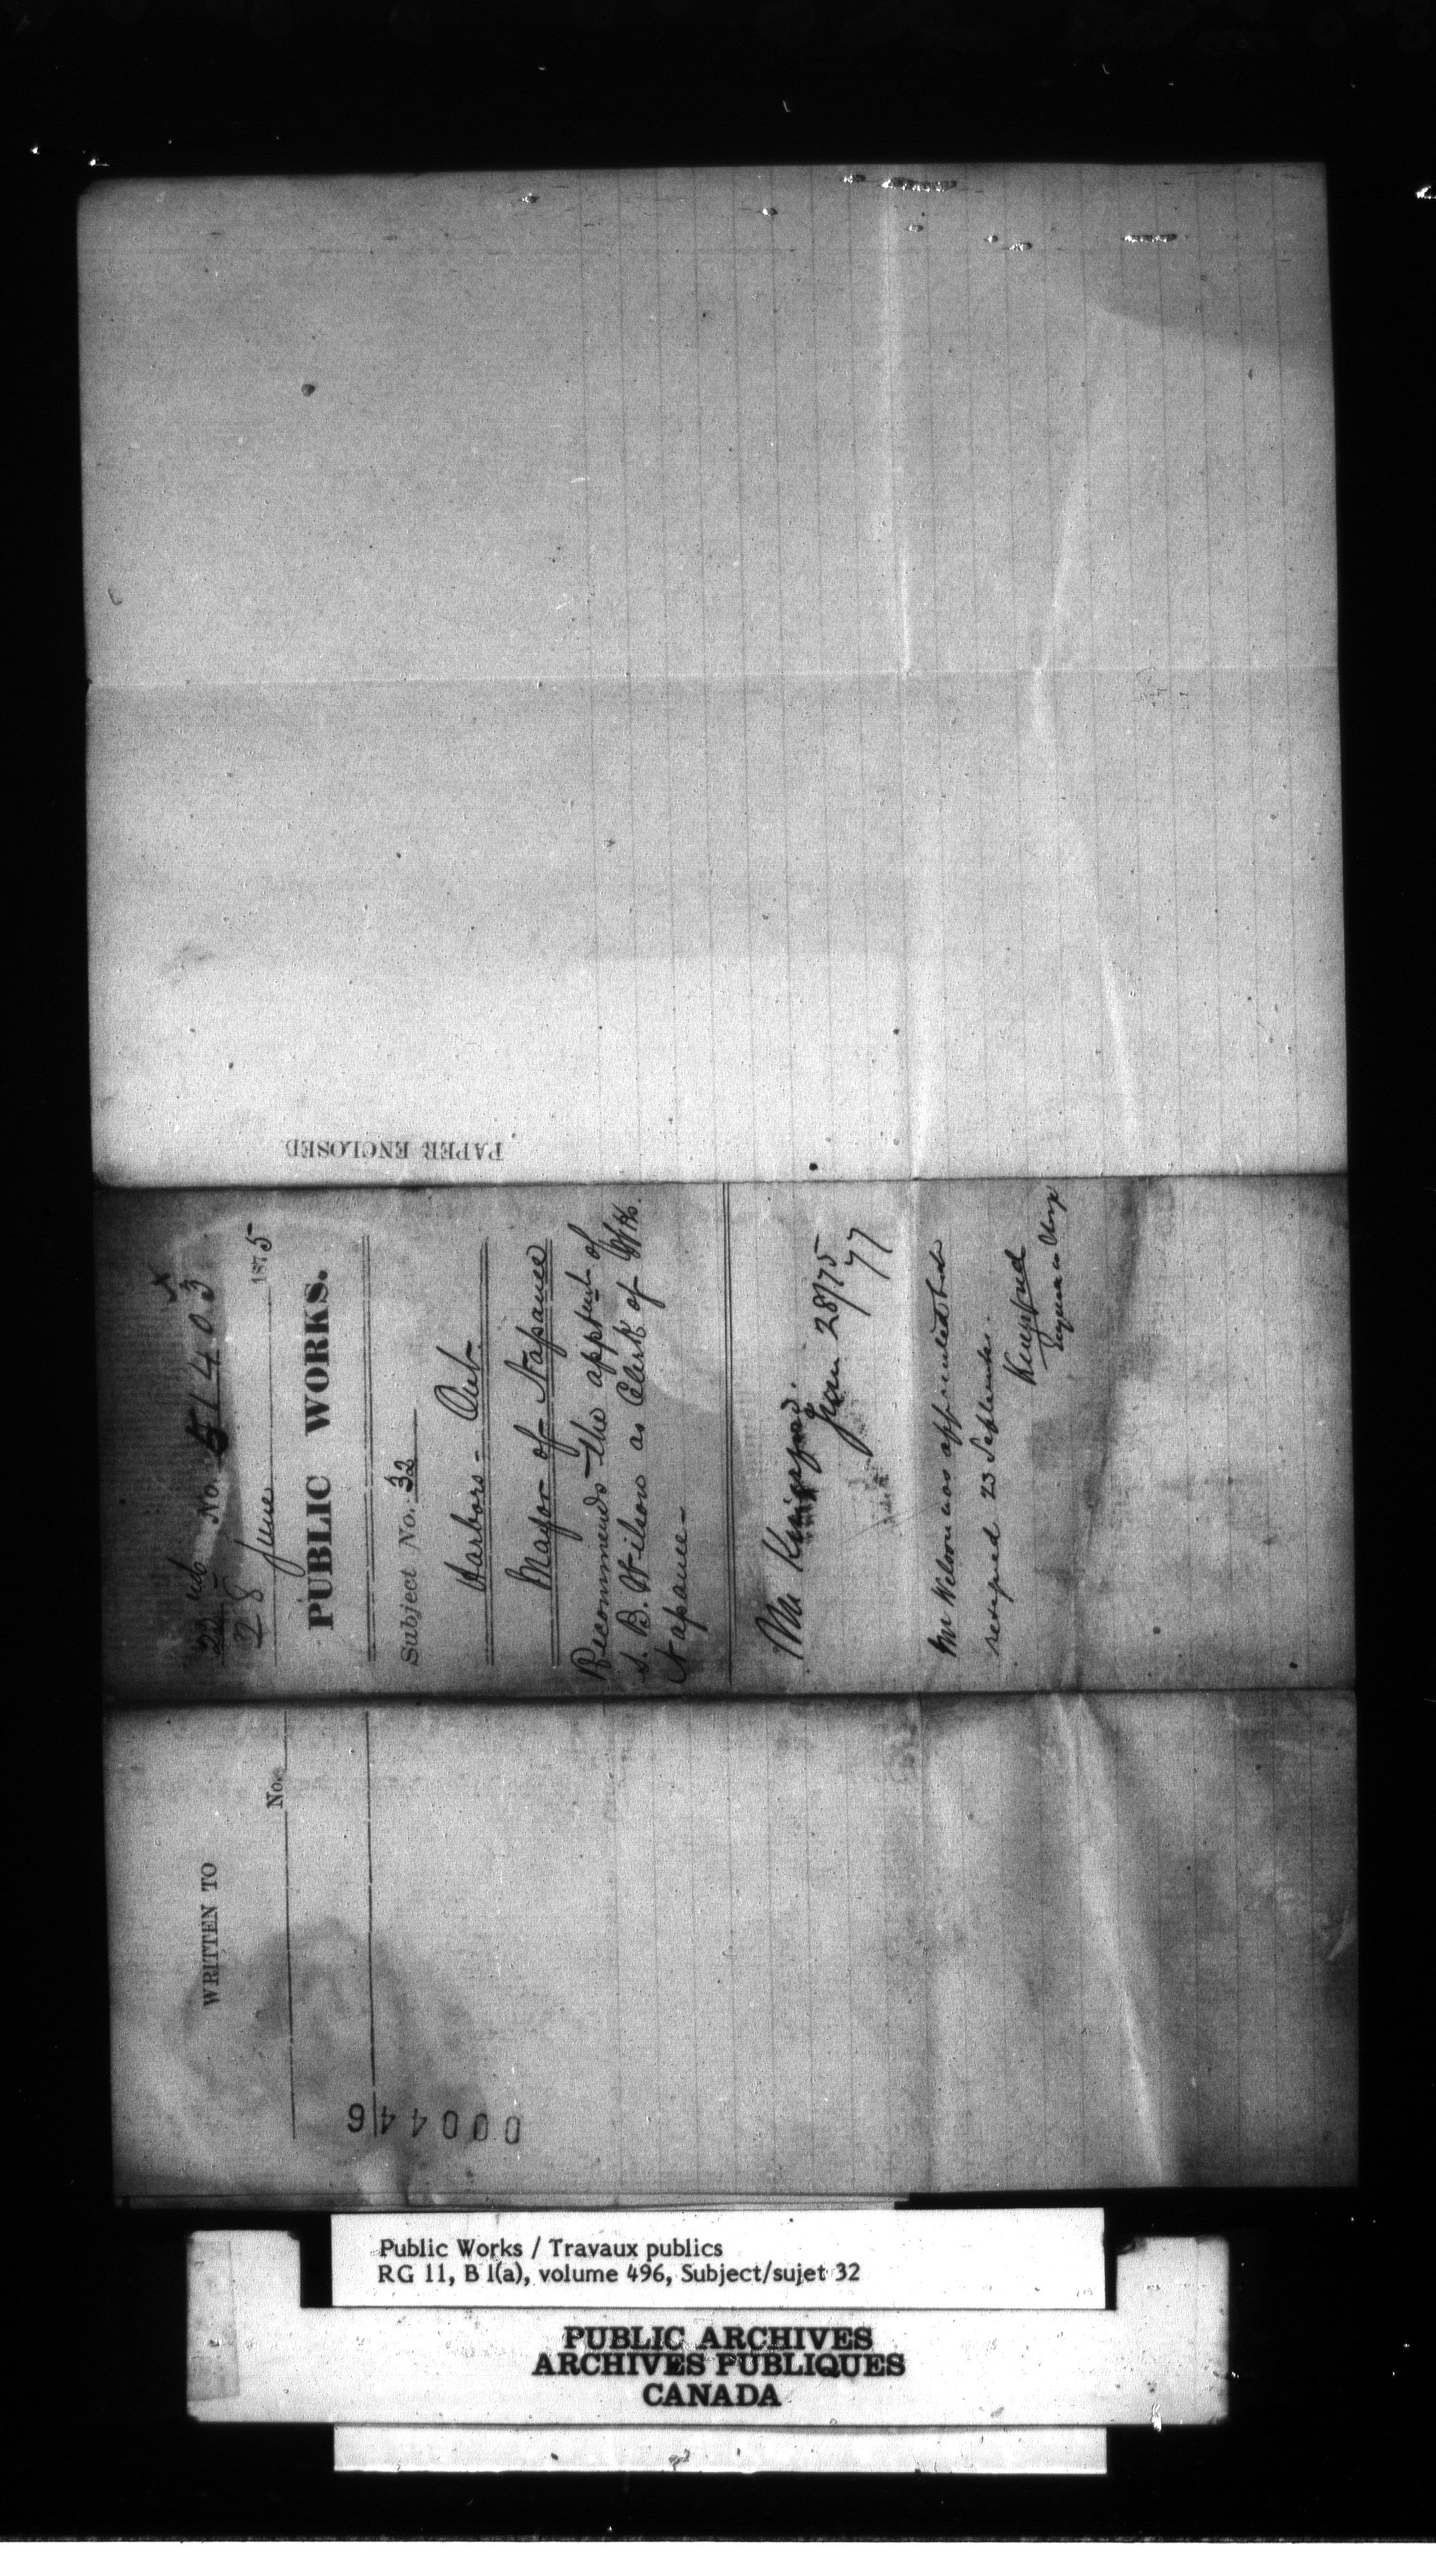 PAPER ENCLOSED
No. 51403
28 June 1875
PUBLIC WORKS.
Subject No. 32
Harbors - Ont.
Mayor of Napanee
Recommends the appt of
S. B. Wilson as Clerk of Wks.
Napanee -
Mr Kingsford.
28/75
77
Mr Wilson was appointed but
resigned 23 September.
Kingsford
Engineer in Charge
WRITTEN TO
No.
000446
Public Works / Travaux publics
RG 11, B 1(a), volume 496, Subject/sujet 32
PUBLIC ARCHIVES
ARCHIVES PUBLIQUES
CANADA